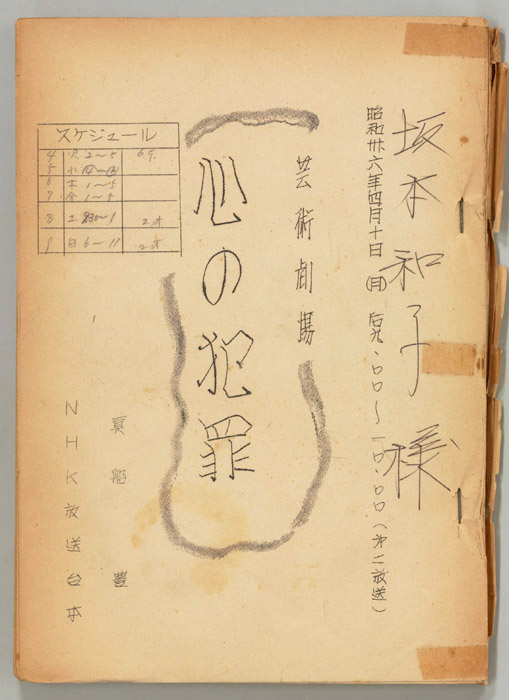 坂本和子様
昭和卅六年四月十日(月)后九・〇〇～一〇・〇〇(第二放送)
芸術劇場
心の犯罪
真船 豊
NHK放送台本
スケジュール
4 火 2～5
5 水
6 木 1～5
7 金 1～5
8 土
9 日 6～11